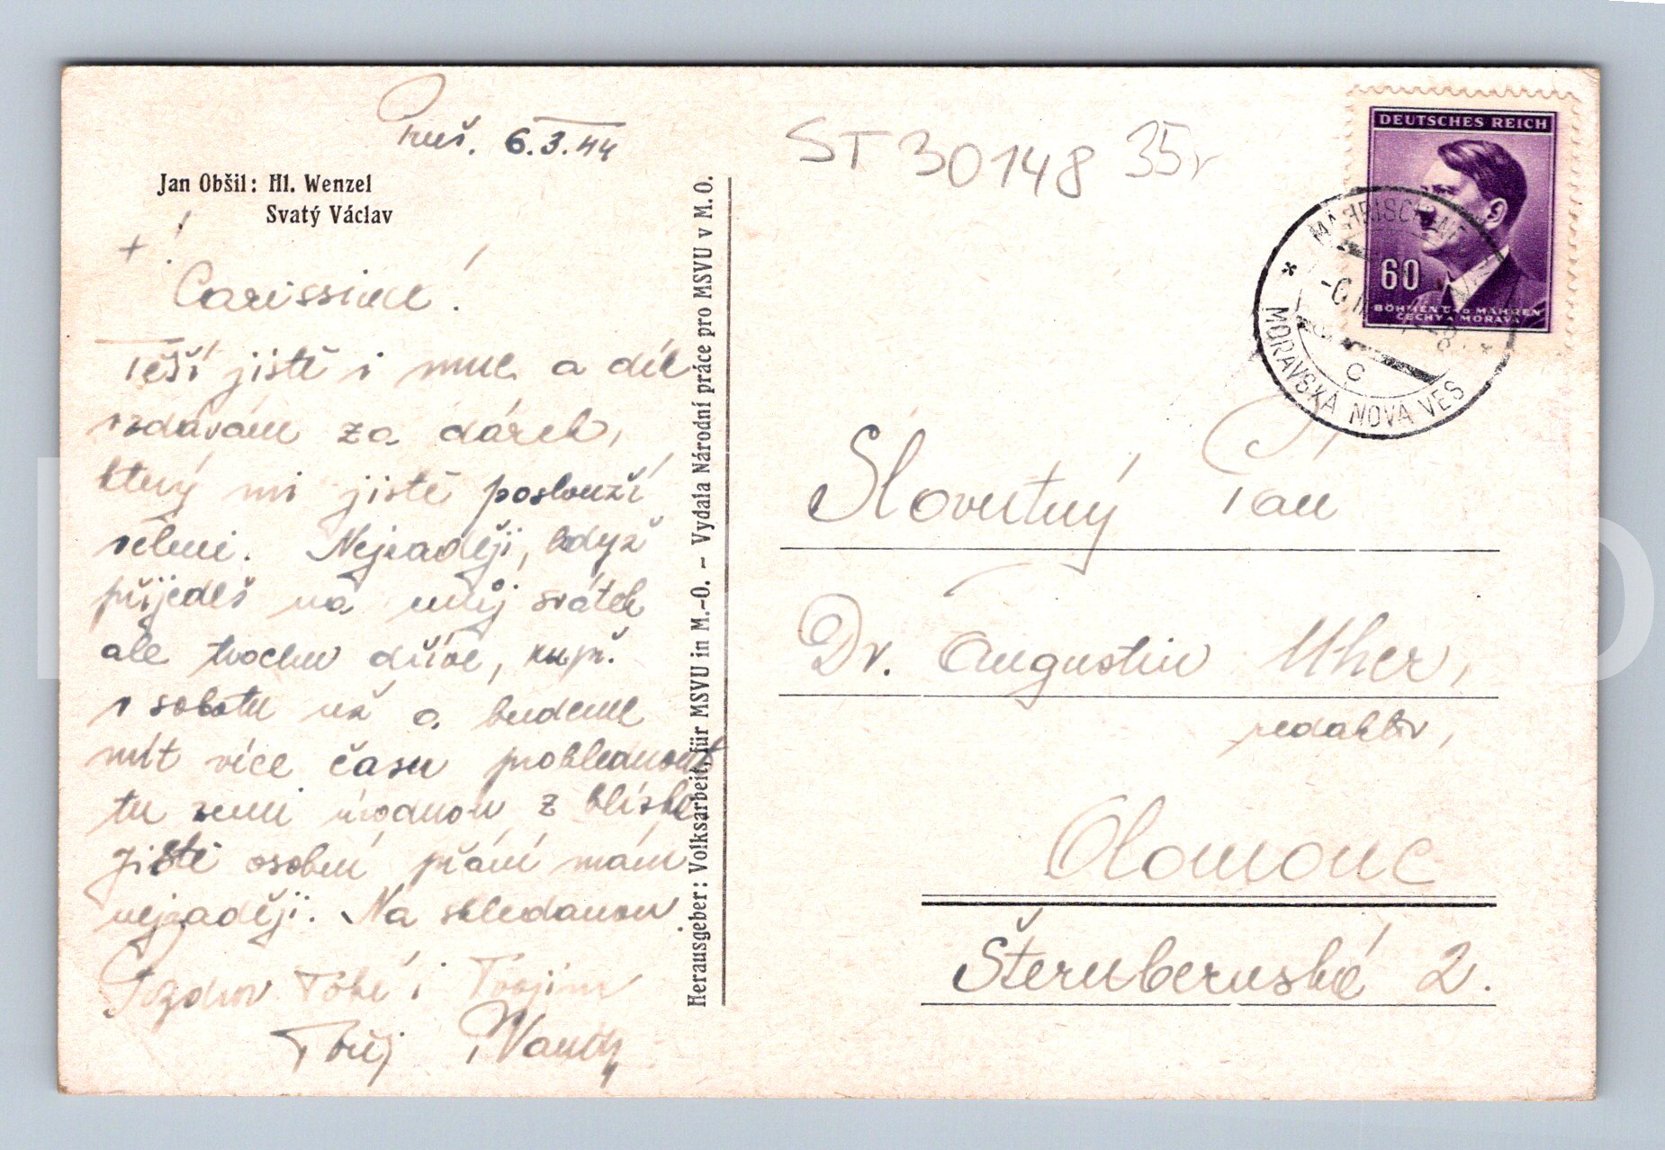 6.3.44
Jan Obšil: Hl. Wenzel
Svatý Václav
+ !
Carissime!
Těší jistě i mne a dík
vzdávám za dárek,
který mi jistě poslouží
velmi. Nejraději, když
přijedeš na můj svátek
ale trochu dříve, např.
v sobotu už a budeme
mít více času prohlednout
tu zemi úrodnou z blízka
jistě osobní přání mám
nejraději. Na shledanou.
Pozdrav Tobě i Tvojím
Tvůj
Herausgeber: Volksarbeit, für MSVU in M.-O. – Vydala Národní práce pro MSVU v M. O.
ST 30148 35,-
DEUTSCHES REICH
60
BÖHMEN U. MÄHREN
ČECHY A MORAVA
MORAVSKÁ NOVÁ VES
C
Slovutný Pan
Dr. Augustin Uher,
redaktor,
Olomouc
Šternberuská 2.